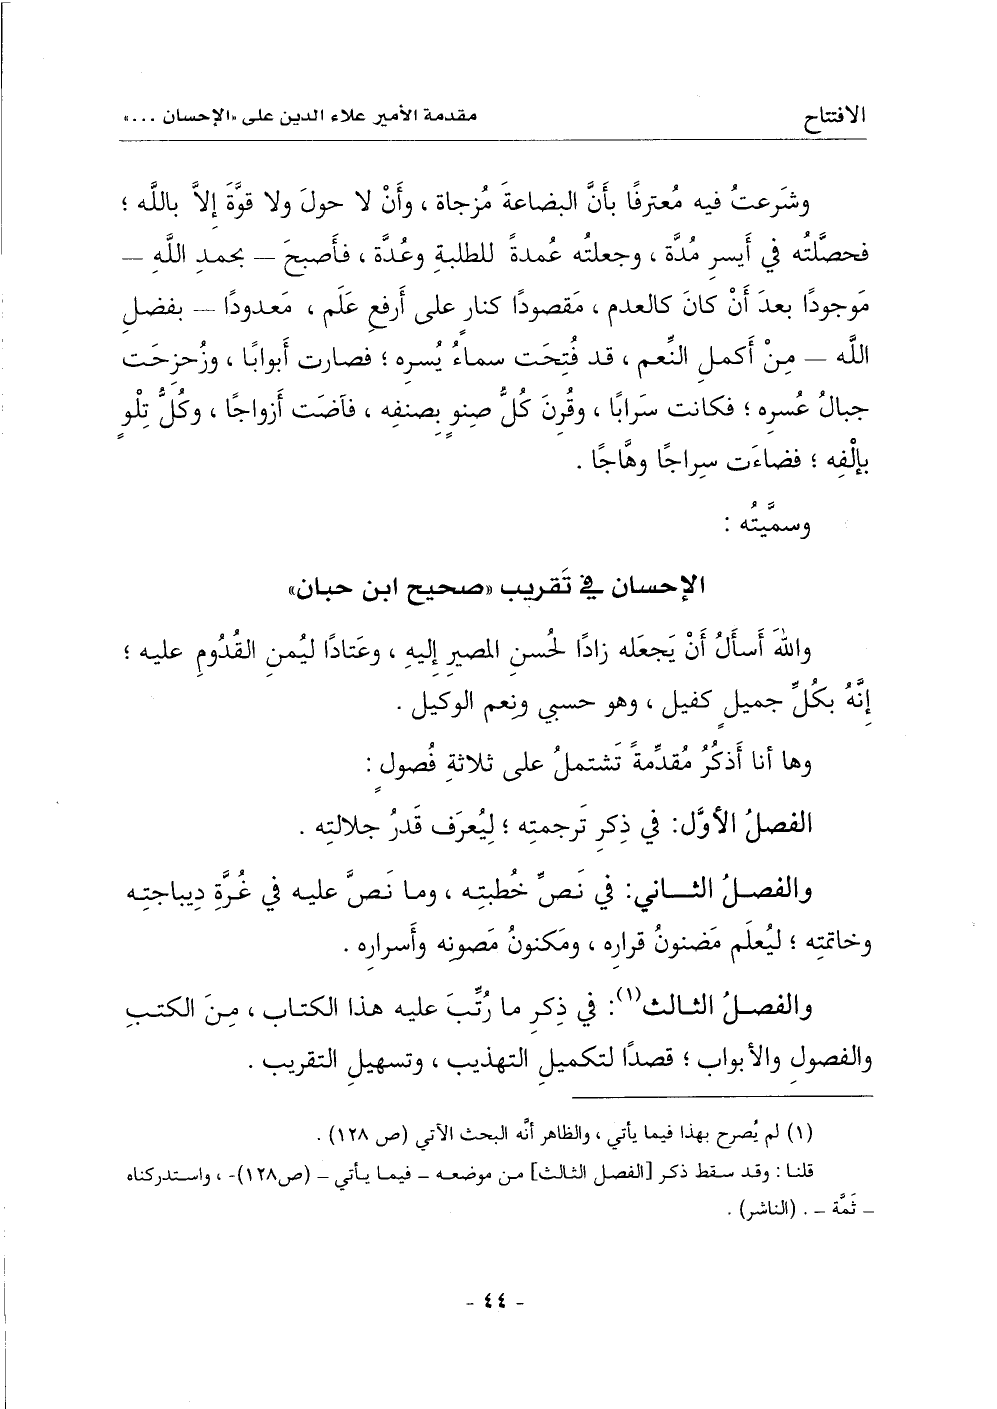 الافتتاح
مقدمة الأمير علاء الدين على «الإحسان ...»
وشَرعتُ فيه مُعترفًا بأنَّ البضاعةَ مُزجاة ، وأَنْ لا حولَ ولا قوَّةَ إلاَّ باللَّه ؛
فحصَّلتُه في أَيسرِ مُدَّة ، وجعلتُه عُمدةً للطلبةِ وعُدَّة ، فأَصبحَ – بحمدِ اللَّهِ –
مَوجودًا بعدَ أَنْ كانَ كالعدمِ ، مَقصودًا كنارٍ على أَرفعِ عَلَم ، مَعدودًا – بفضلِ
اللَّه – مِنْ أَكملِ النِّعم ، قد فُتِحَت سماءُ يُسرِه ؛ فصارت أَبوابًا ، وزُحزِحَت
جبالُ عُسرِه ؛ فكانت سَرابًا ، وقُرِنَ كُلُّ صِنوٍ بصِنفِه ، فآضَت أَزواجًا ، وكُلُّ تِلْوٍ
بإلْفِه ؛ فضاءَت سِراجًا وهَّاجًا .
وسمَّيتُه :
الإحسان في تَقريب «صحيح ابن حبان»
واللهَ أَسأَلُ أَنْ يَجعَله زادًا لحُسنِ المصيرِ إليهِ ، وعَتادًا ليُمنِ القُدُومِ عليه ؛
إنَّهُ بكُلِّ جميلٍ كفيل ، وهو حسبي ونِعم الوكيل .
وها أنا أَذكُرُ مُقدِّمةً تَشتملُ على ثلاثةِ فُصولٍ :
الفصلُ الأوَّل: في ذِكرِ تَرجمتِه ؛ لِيُعرَف قَدرُ جلالتِه .
والفصلُ الثـاني: في نَصِّ خُطبتِه ، وما نَصَّ عليه في غُرَّةِ دِيباجتِه
وخاتمتِه ؛ ليُعلَم مَضنونُ قرارِه ، ومَكنونُ مَصونِه وأَسرارِه .
والفصلُ الثالث(١): في ذِكرِ ما رُتِّبَ عليه هذا الكتاب ، مِنَ الكتبِ
والفصولِ والأبواب ؛ قصدًا لتكميلِ التهذيب ، وتسهيلِ التقريب .
(١) لم يُصرح بهذا فيما يأتي ، والظاهر أنَّه البحث الآتي (ص ١٢٨) .
قلنا : وقد سقط ذكر [الفصل الثالث] من موضعه – فيما يأتي – (ص١٢٨)- ، واستدركناه
– ثَمَّة – . (الناشر) .
- ٤٤ -